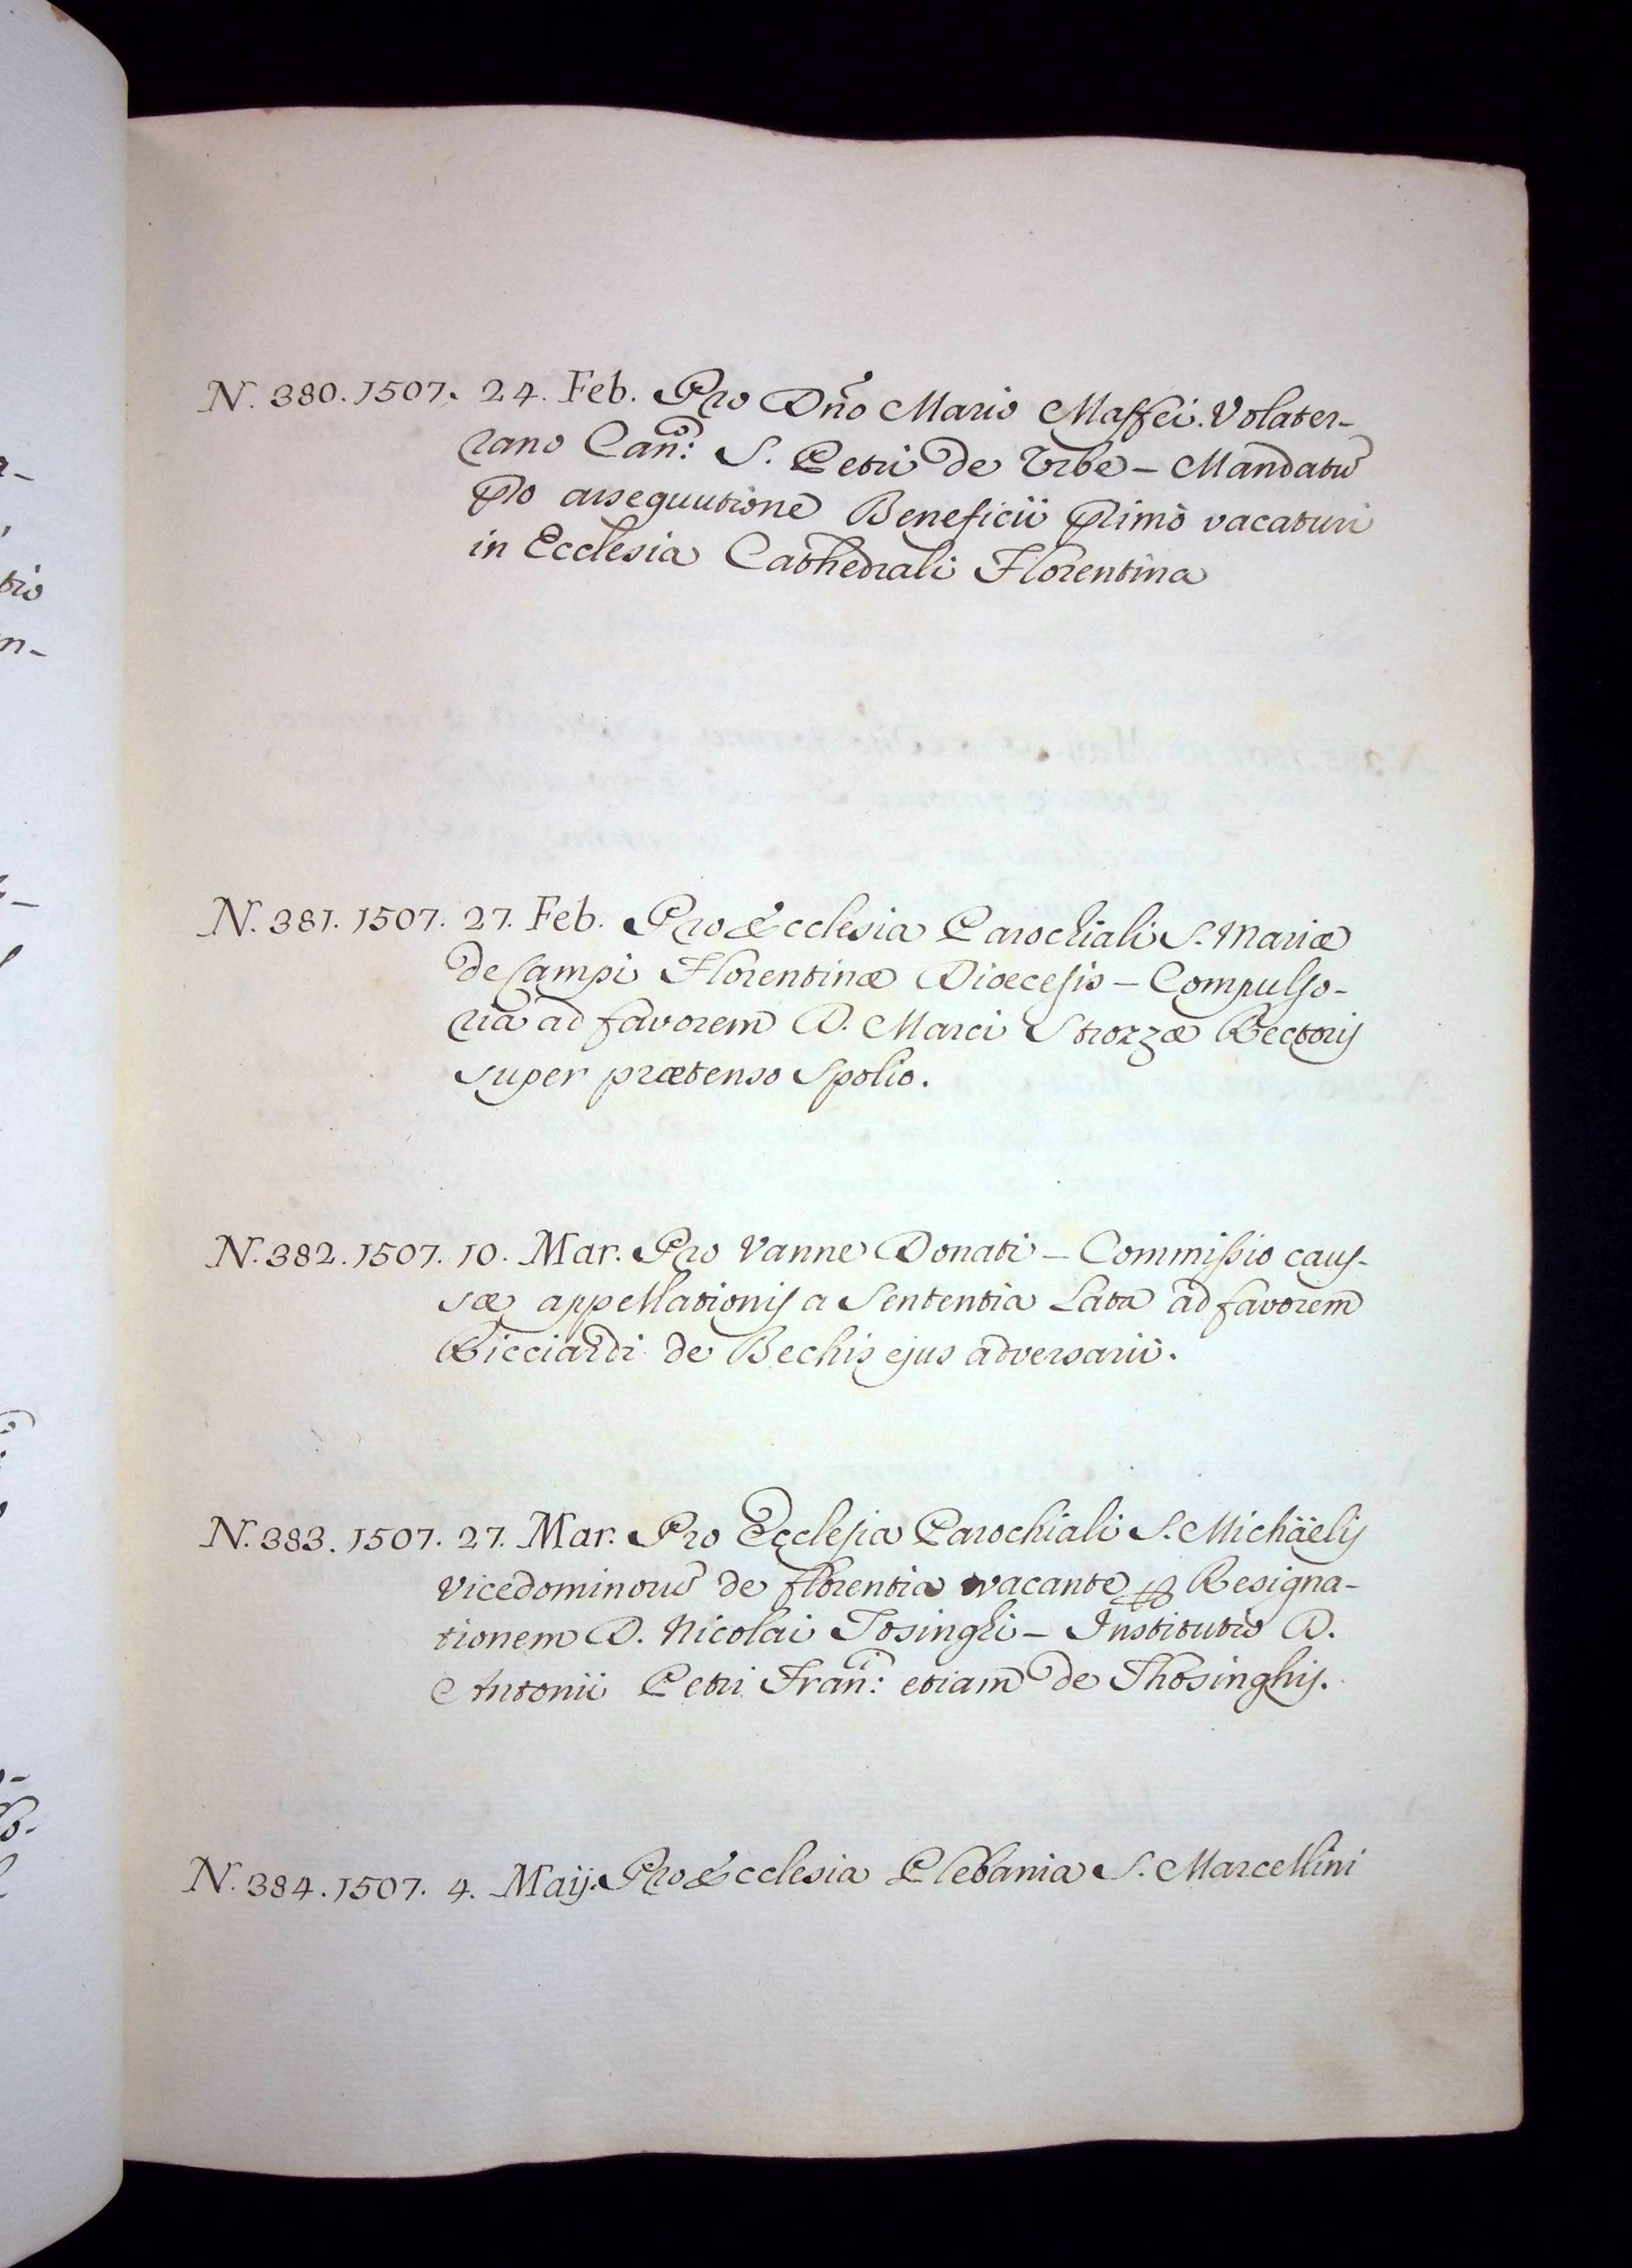 N. 380. 1507. 24. Feb. Pro Dño Mario Maffei. Volater-
rano Cañ:co S. Petri de Urbe – Mandatũ
pro assequutione Beneficii primò vacaturi
in Ecclesia Cathedrali Florentina
N. 381. 1507. 27. Feb. Pro Ecclesia Parochiali S. Mariæ
de Campi Florentinæ Dioecesis – Compulso-
ria ad favorem D. Marci Strozzæ Rectoris
super prætenso Spolio.
N. 382. 1507. 10. Mar. Pro Vanne Donati – Commissio caus-
sæ appellationis a Sententia Lata ad favorem
Ricciardi de Bechis ejus adversarii.
N. 383. 1507. 27. Mar. Pro Ecclesia Parochiali S. Michäelis
Vicedominorũ de florentia vacante ꝑ Resigna-
tionem D. Nicolai Tosinghi – Institutio D.
Antonii Petri Frañ:ci etiam de Thosinghis.
N. 384. 1507. 4. Maij. Pro Ecclesia Plebania S. Marcellini
tio
n-